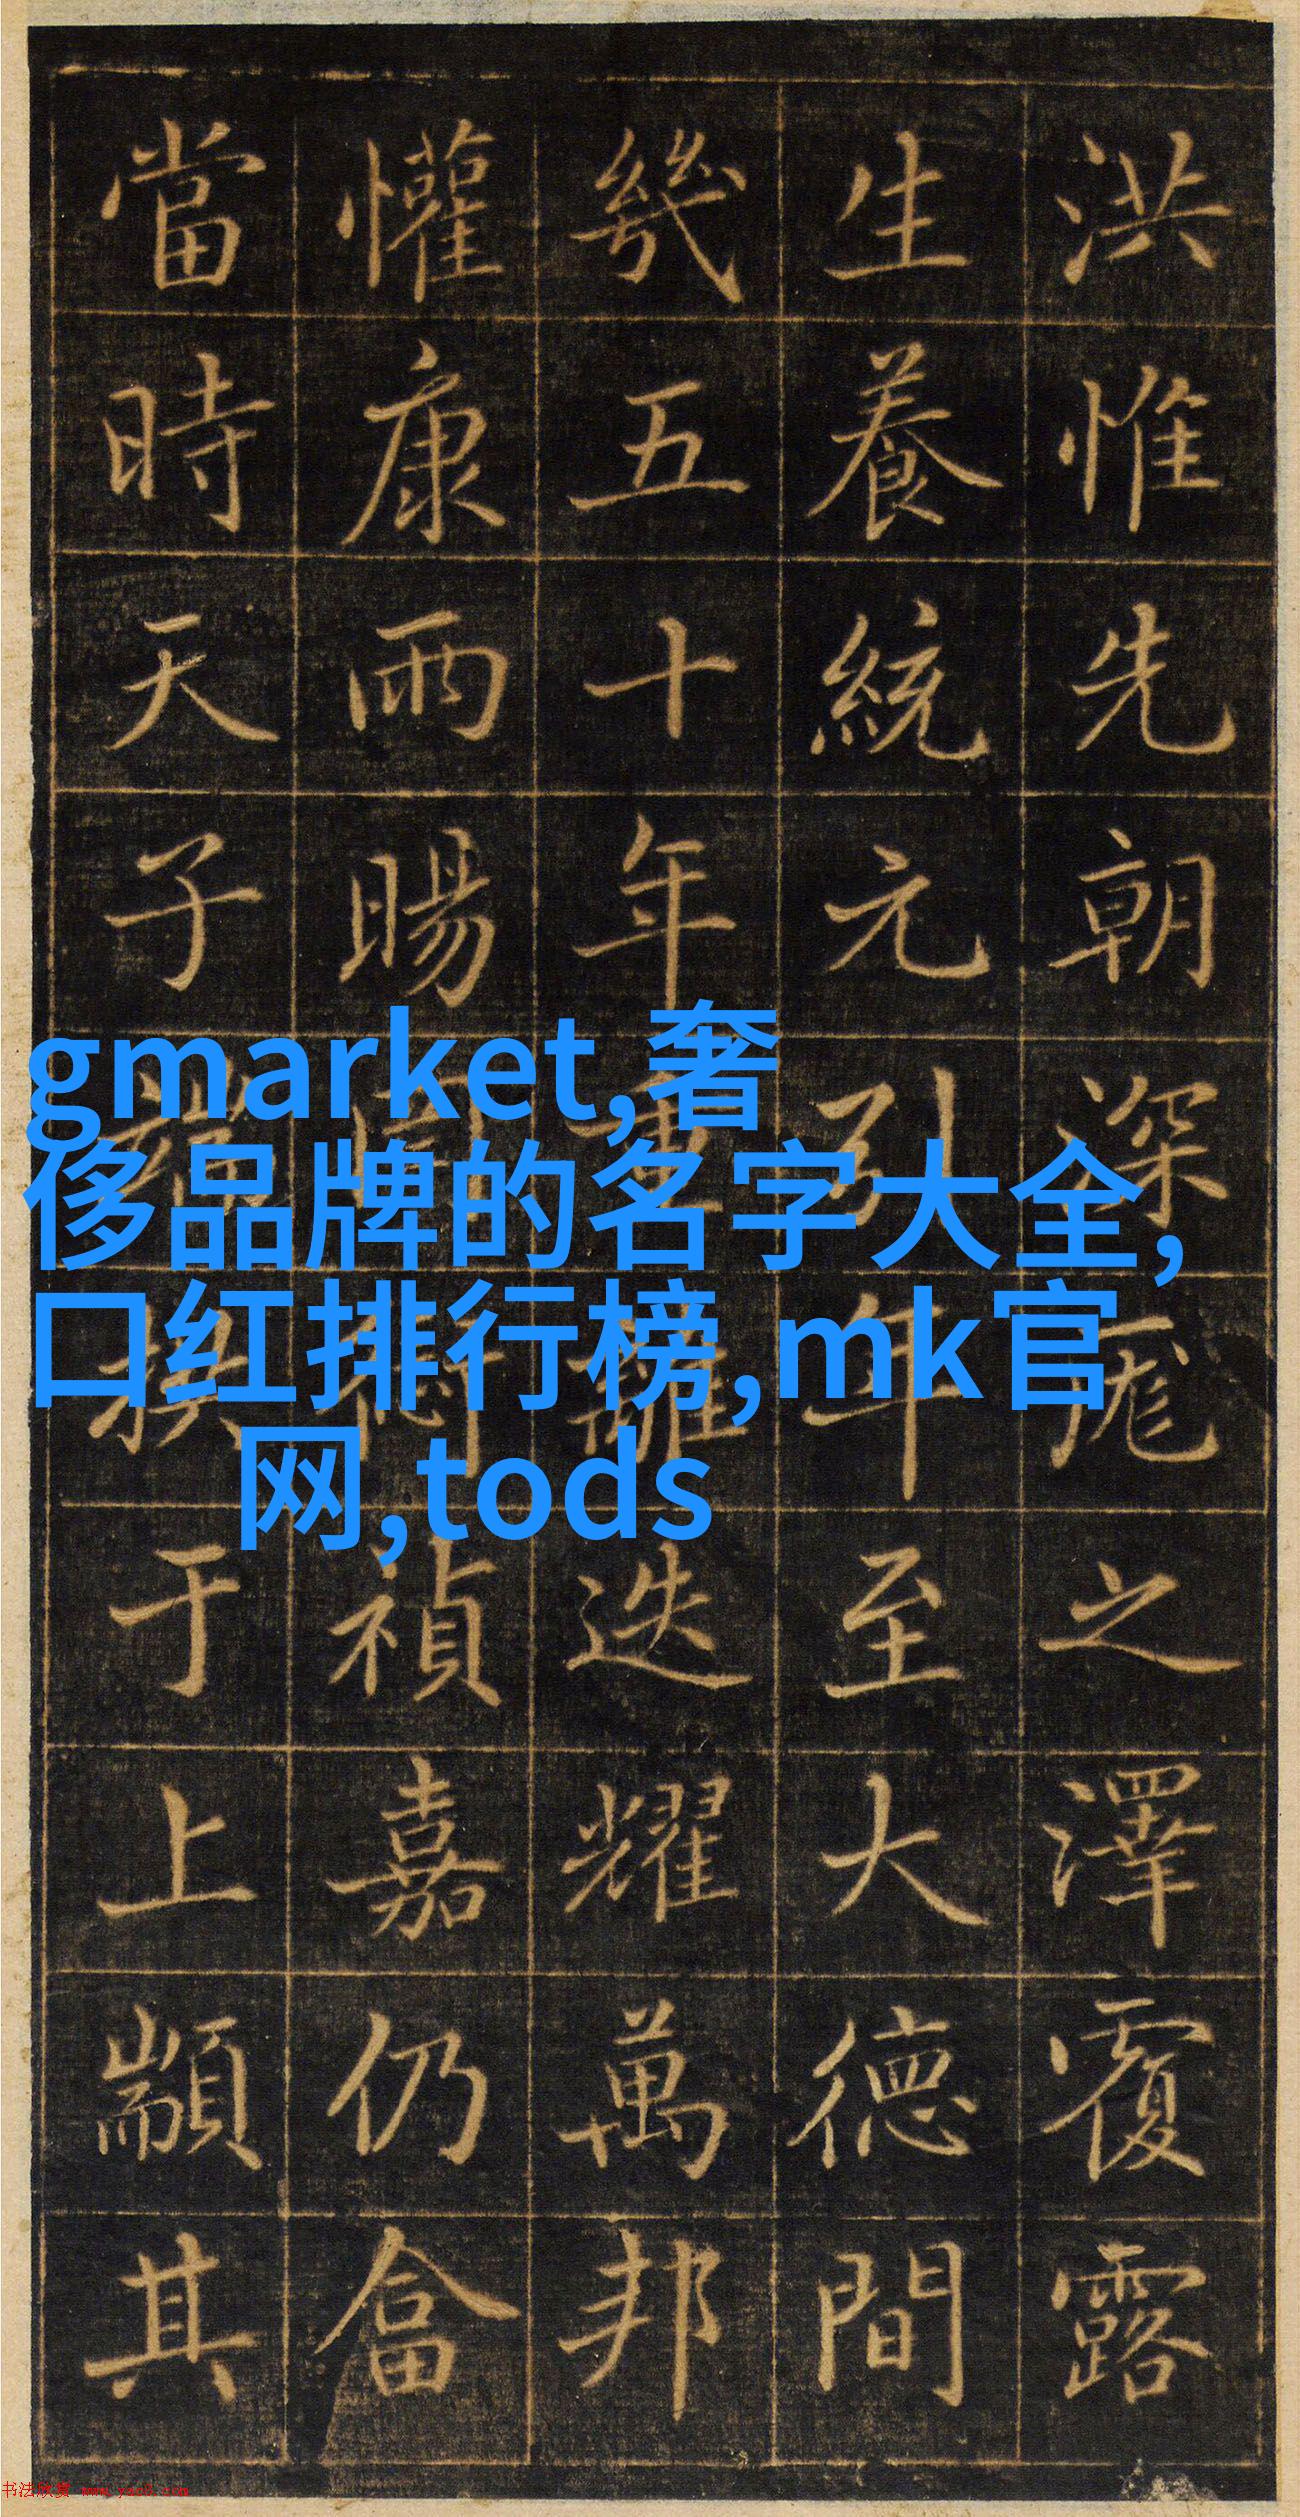 洪惟先朝深厖之澤覆露
生養統元引年至大德間
幾五十年重離迭耀萬邦
懽康雨暘禎嘉仍畣
當時天子端拱于上顒其
gmarket,奢
侈品牌的名字大全,
口红排行榜,mk官
网,tods
书法欣赏 www.yac8.com